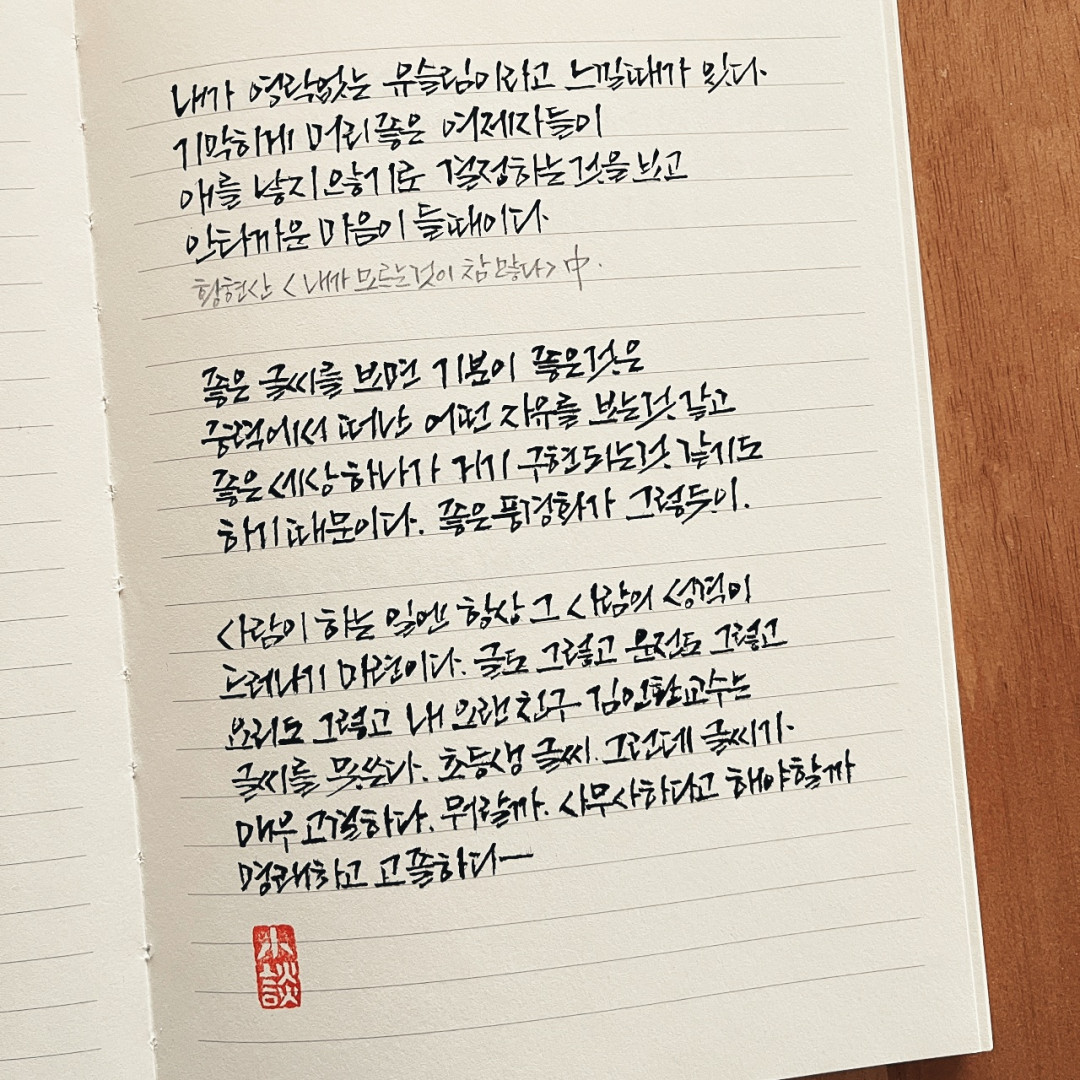 내가 영락없는 무슬림이라고 느낄때가 있다.
기막히게 머리좋은 여제자들이
애를 낳지않기로 결정하는것을보고
안타까운 마음이 들때이다.
황현산 <내가 모르는것이 참 많다> 中.
좋은 글씨를 보면 기분이 좋은것은
중력에서 떠난 어떤 자유를 보는것 같고
좋은 세상하나가 거기 구현되는것 같기도
하기때문이다. 좋은풍경화가 그렇듯이.
사람이 하는 일엔 항상 그 사람의 성격이
드러나기 마련이다. 글도 그렇고 운전도 그렇고
요리도 그렇고 내 오랜친구 김인환교수는
글씨를 못쓴다. 초등생 글씨. 그런데 글씨가.
매우 고결하다. 뭐랄까. 사무사하다고 해야할까
명쾌하고 고졸하다—
小談